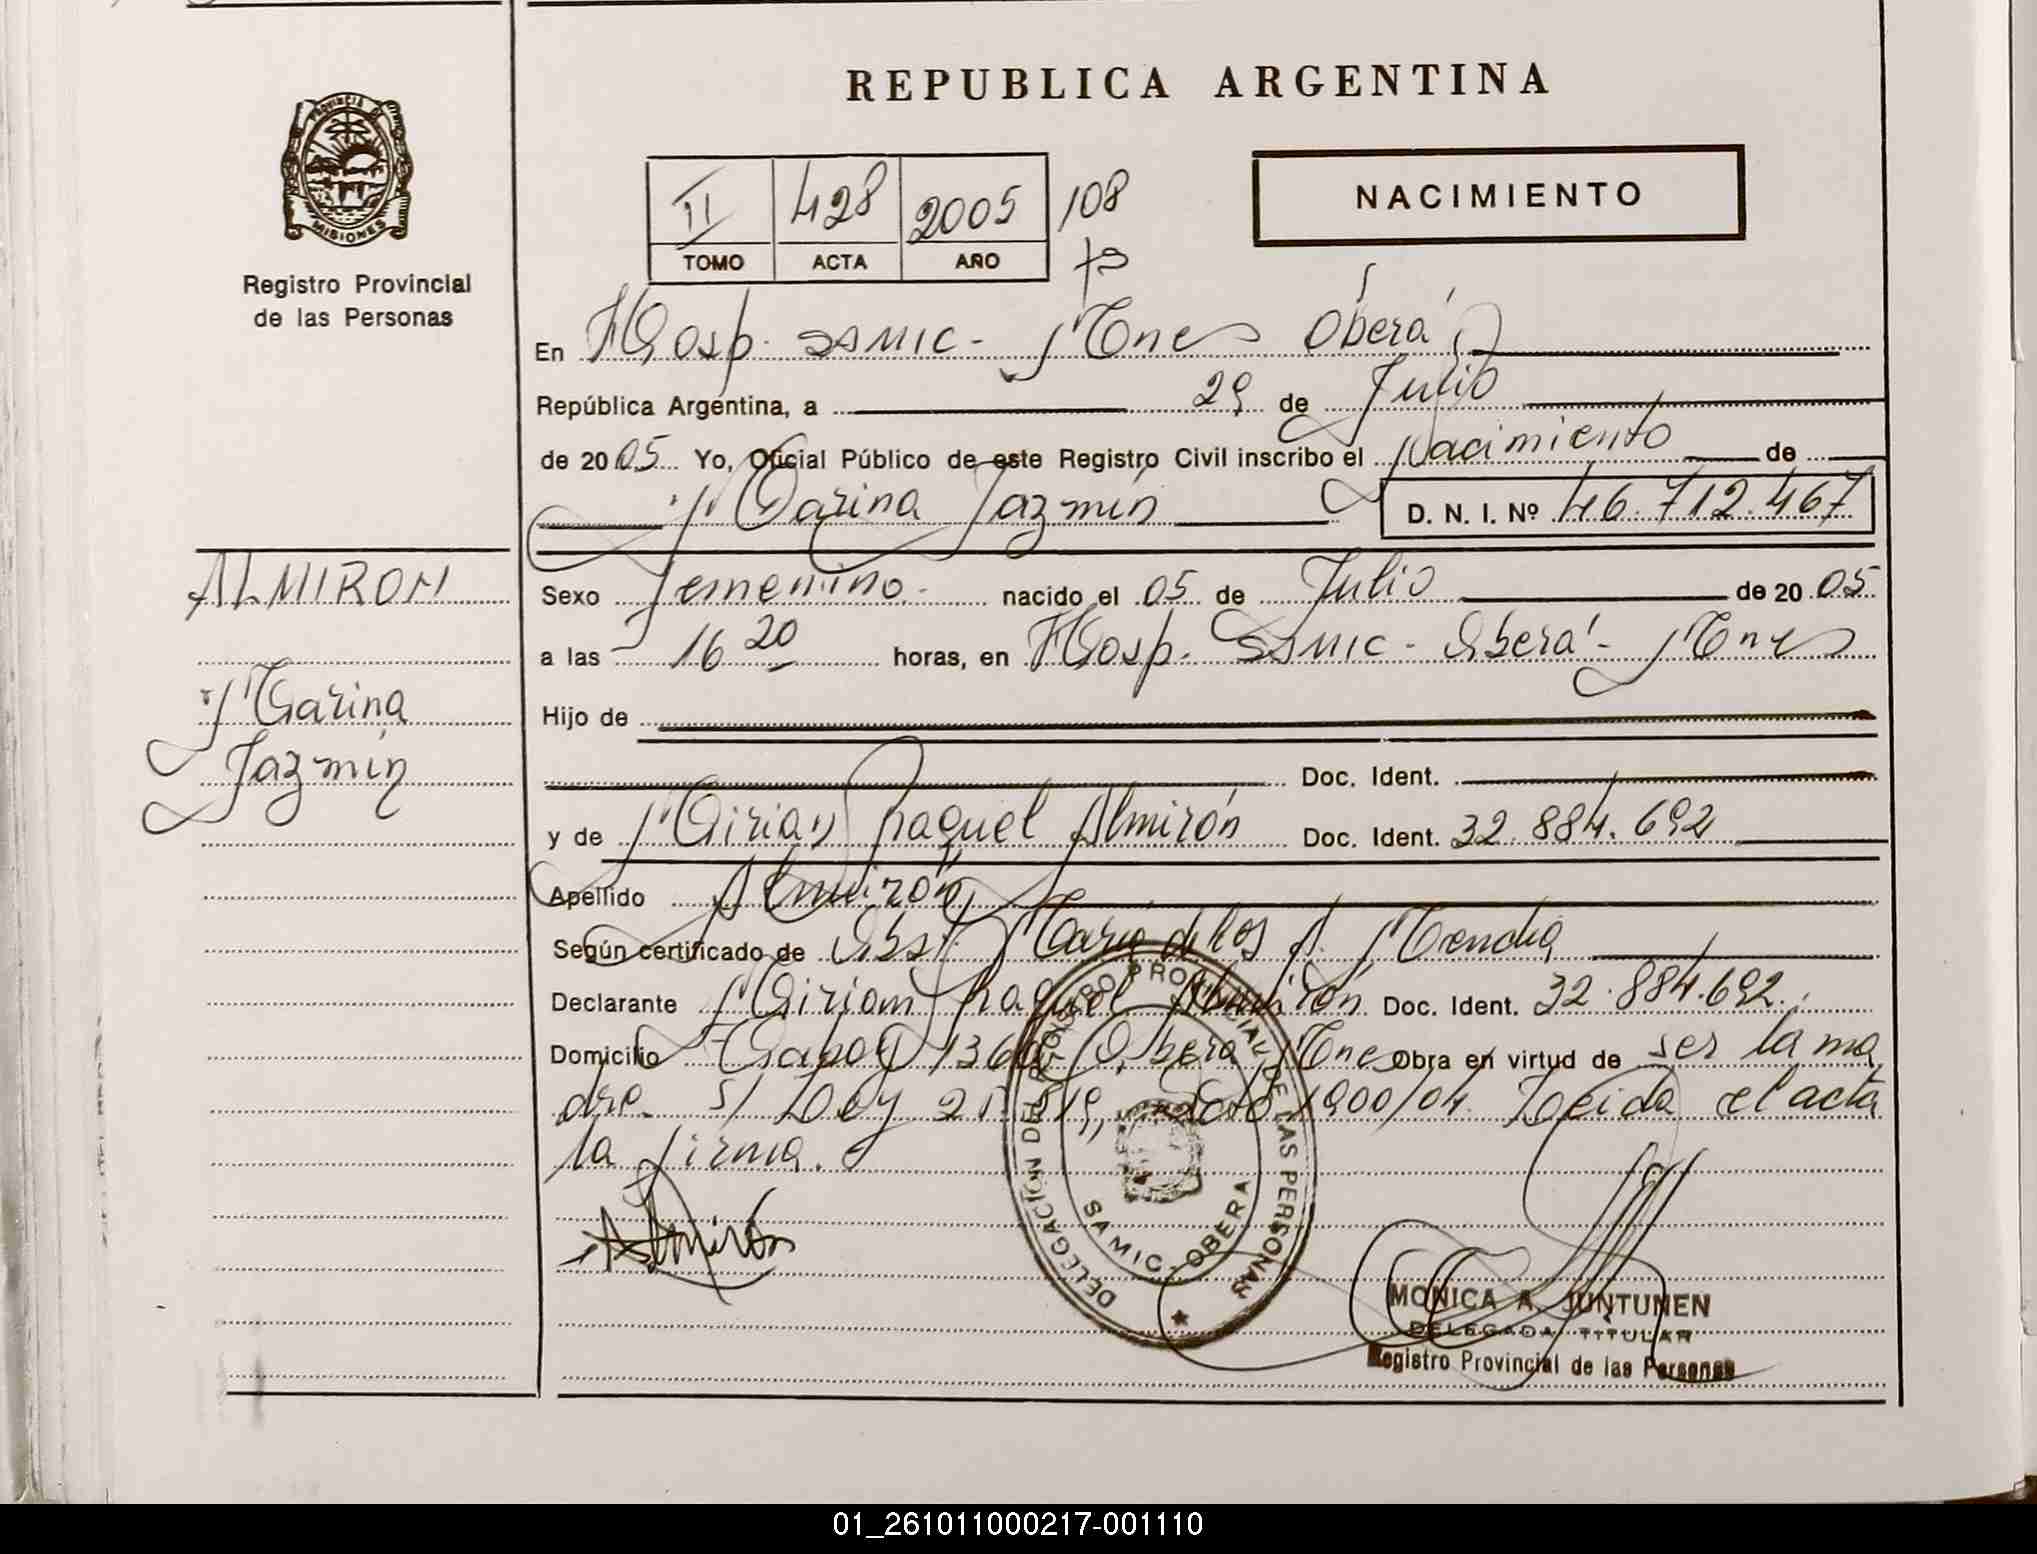 REPUBLICA ARGENTINA
PROVINCIA DE MISIONES
Registro Provincial
de las Personas
II 428 2005 108
TOMO ACTA AÑO
NACIMIENTO
En Hosp. SAMIC - Mnes Oberá
República Argentina, a 29 de Julio
de 2005 Yo, Oficial Público de este Registro Civil inscribo el Nacimiento de
Marina Jazmín D. N. I. Nº 46.712.467
ALMIRON
Marina
Jazmín
Sexo Femenino. nacido el 05 de Julio de 2005
a las 16 20 horas, en Hosp. SAMIC - Oberá - Mnes
Hijo de
Doc. Ident.
y de Mirian Raquel Almirón Doc. Ident. 32.884.692
Apellido Almirón
Según certificado de Obst. María de los A. 
Declarante Miriam Raquel Almirón Doc. Ident. 32.884.692.
Domicilio 1360 Oberá Mnes Obra en virtud de ser la ma
dre. S/ Ley 1900/04. Leida el acta
la firma.
Almirón
DELEGACION DEL REGISTRO PROVINCIAL DE LAS PERSONAS
SAMIC - OBERA
MONICA A. JUNTUNEN
DELEGADA TITULAR
Registro Provincial de las Personas
01_261011000217-001110